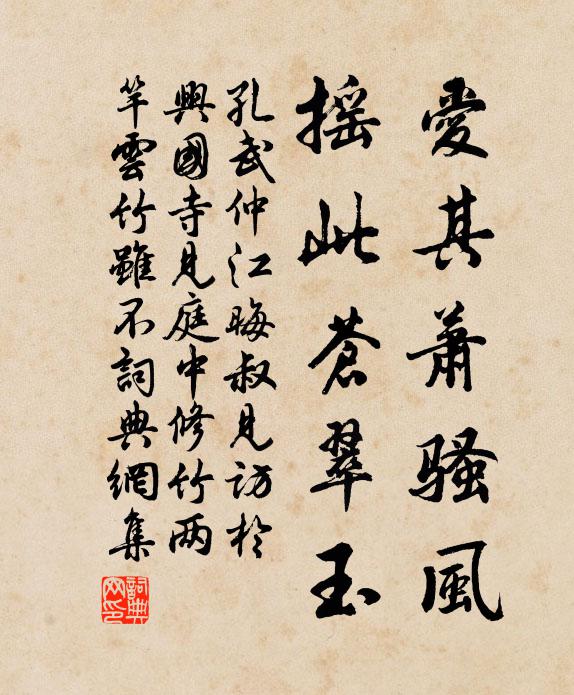 愛其蕭騷風
搖此蒼翠玉
孔武仲江晦叔見訪於
興國寺見庭中修竹两
竿雲竹雖不詞典網集
詞典
网印